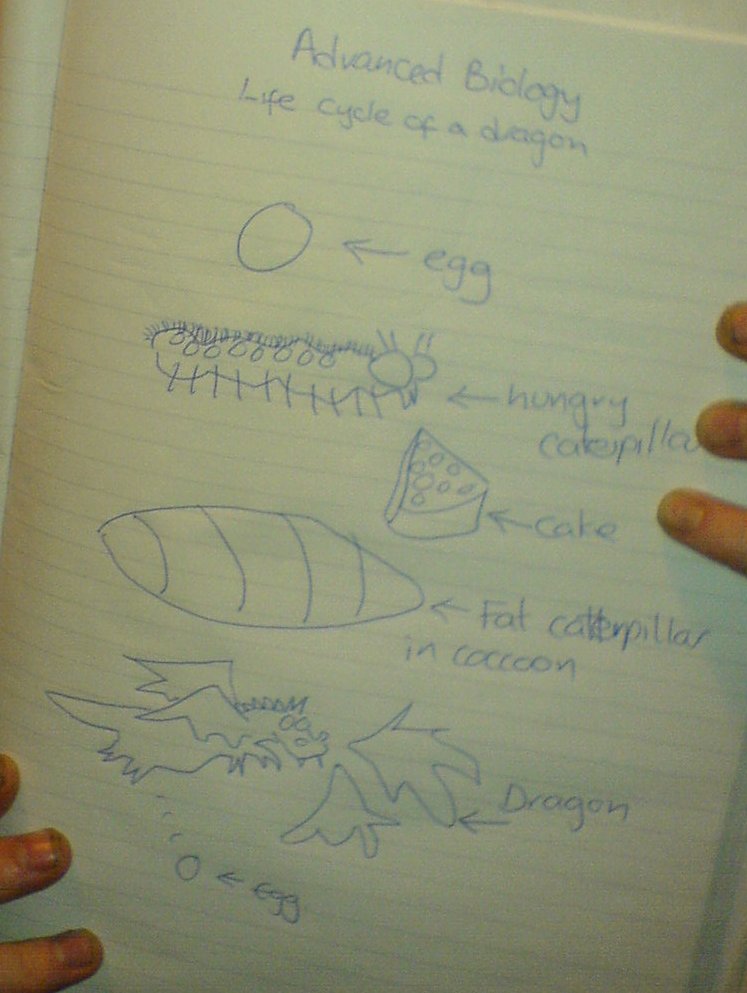 Advanced Biology
Life cycle of a dragon
← egg
← hungry
caterpillar
← cake
← Fat catterpillar
in coccoon
← Dragon
← egg